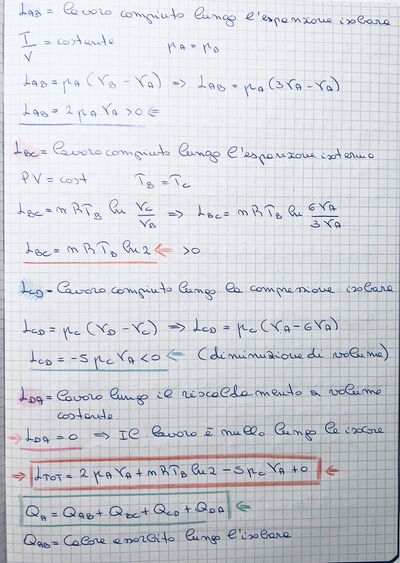 L_AB = lavoro compiuto lungo l'espansione isobara
T/V = costante p_A = p_B
L_AB = p_A (V_B - V_A) => L_AB = p_A (3V_A - V_A)
L_AB = 2 p_A V_A > 0 <=
L_BC = lavoro compiuto lungo l'espansione isoterma
PV = cost T_B = T_C
L_BC = nRT_B ln V_C/V_B => L_BC = nRT_B ln 6V_A/3V_A
L_BC = nRT_B ln 2 <= > 0
L_CD = lavoro compiuto lungo la compressione isobara
L_CD = p_C (V_D - V_C) => L_CD = p_C (V_A - 6V_A)
L_CD = -5 p_C V_A < 0 <= (diminuzione di volume)
L_DA = lavoro lungo il riscaldamento a volume
costante.
=> L_DA = 0 => Il lavoro è nullo lungo le isocore
=> L_TOT = 2 p_A V_A + nRT_B ln 2 - 5 p_C V_A + 0 <=
Q_A = Q_AB + Q_BC + Q_CD + Q_DA <=
Q_AB = Calore assorbito lungo l'isobara